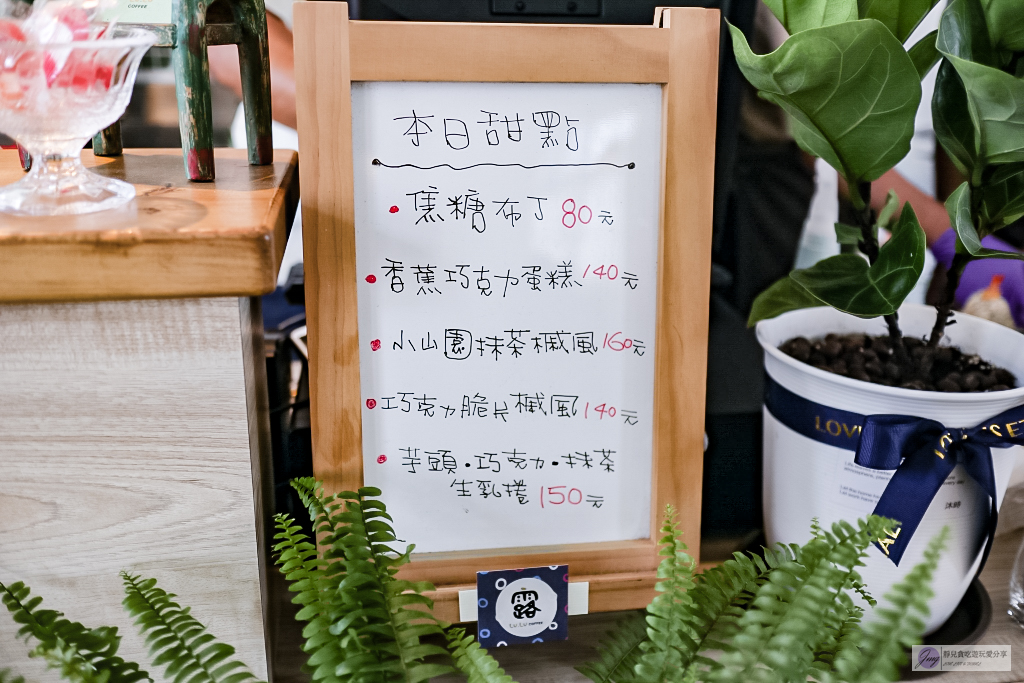 COFFEE
COFFEE
本日甜點
焦糖布丁 80元
香蕉巧克力蛋糕 140元
小山園抹茶楓風 160元
巧克力脆片楓風 140元
芋頭・巧克力・抹茶
生乳捲 150元
露
COFFEE
LOVE
沐時
静兒貪吃遊玩愛分享